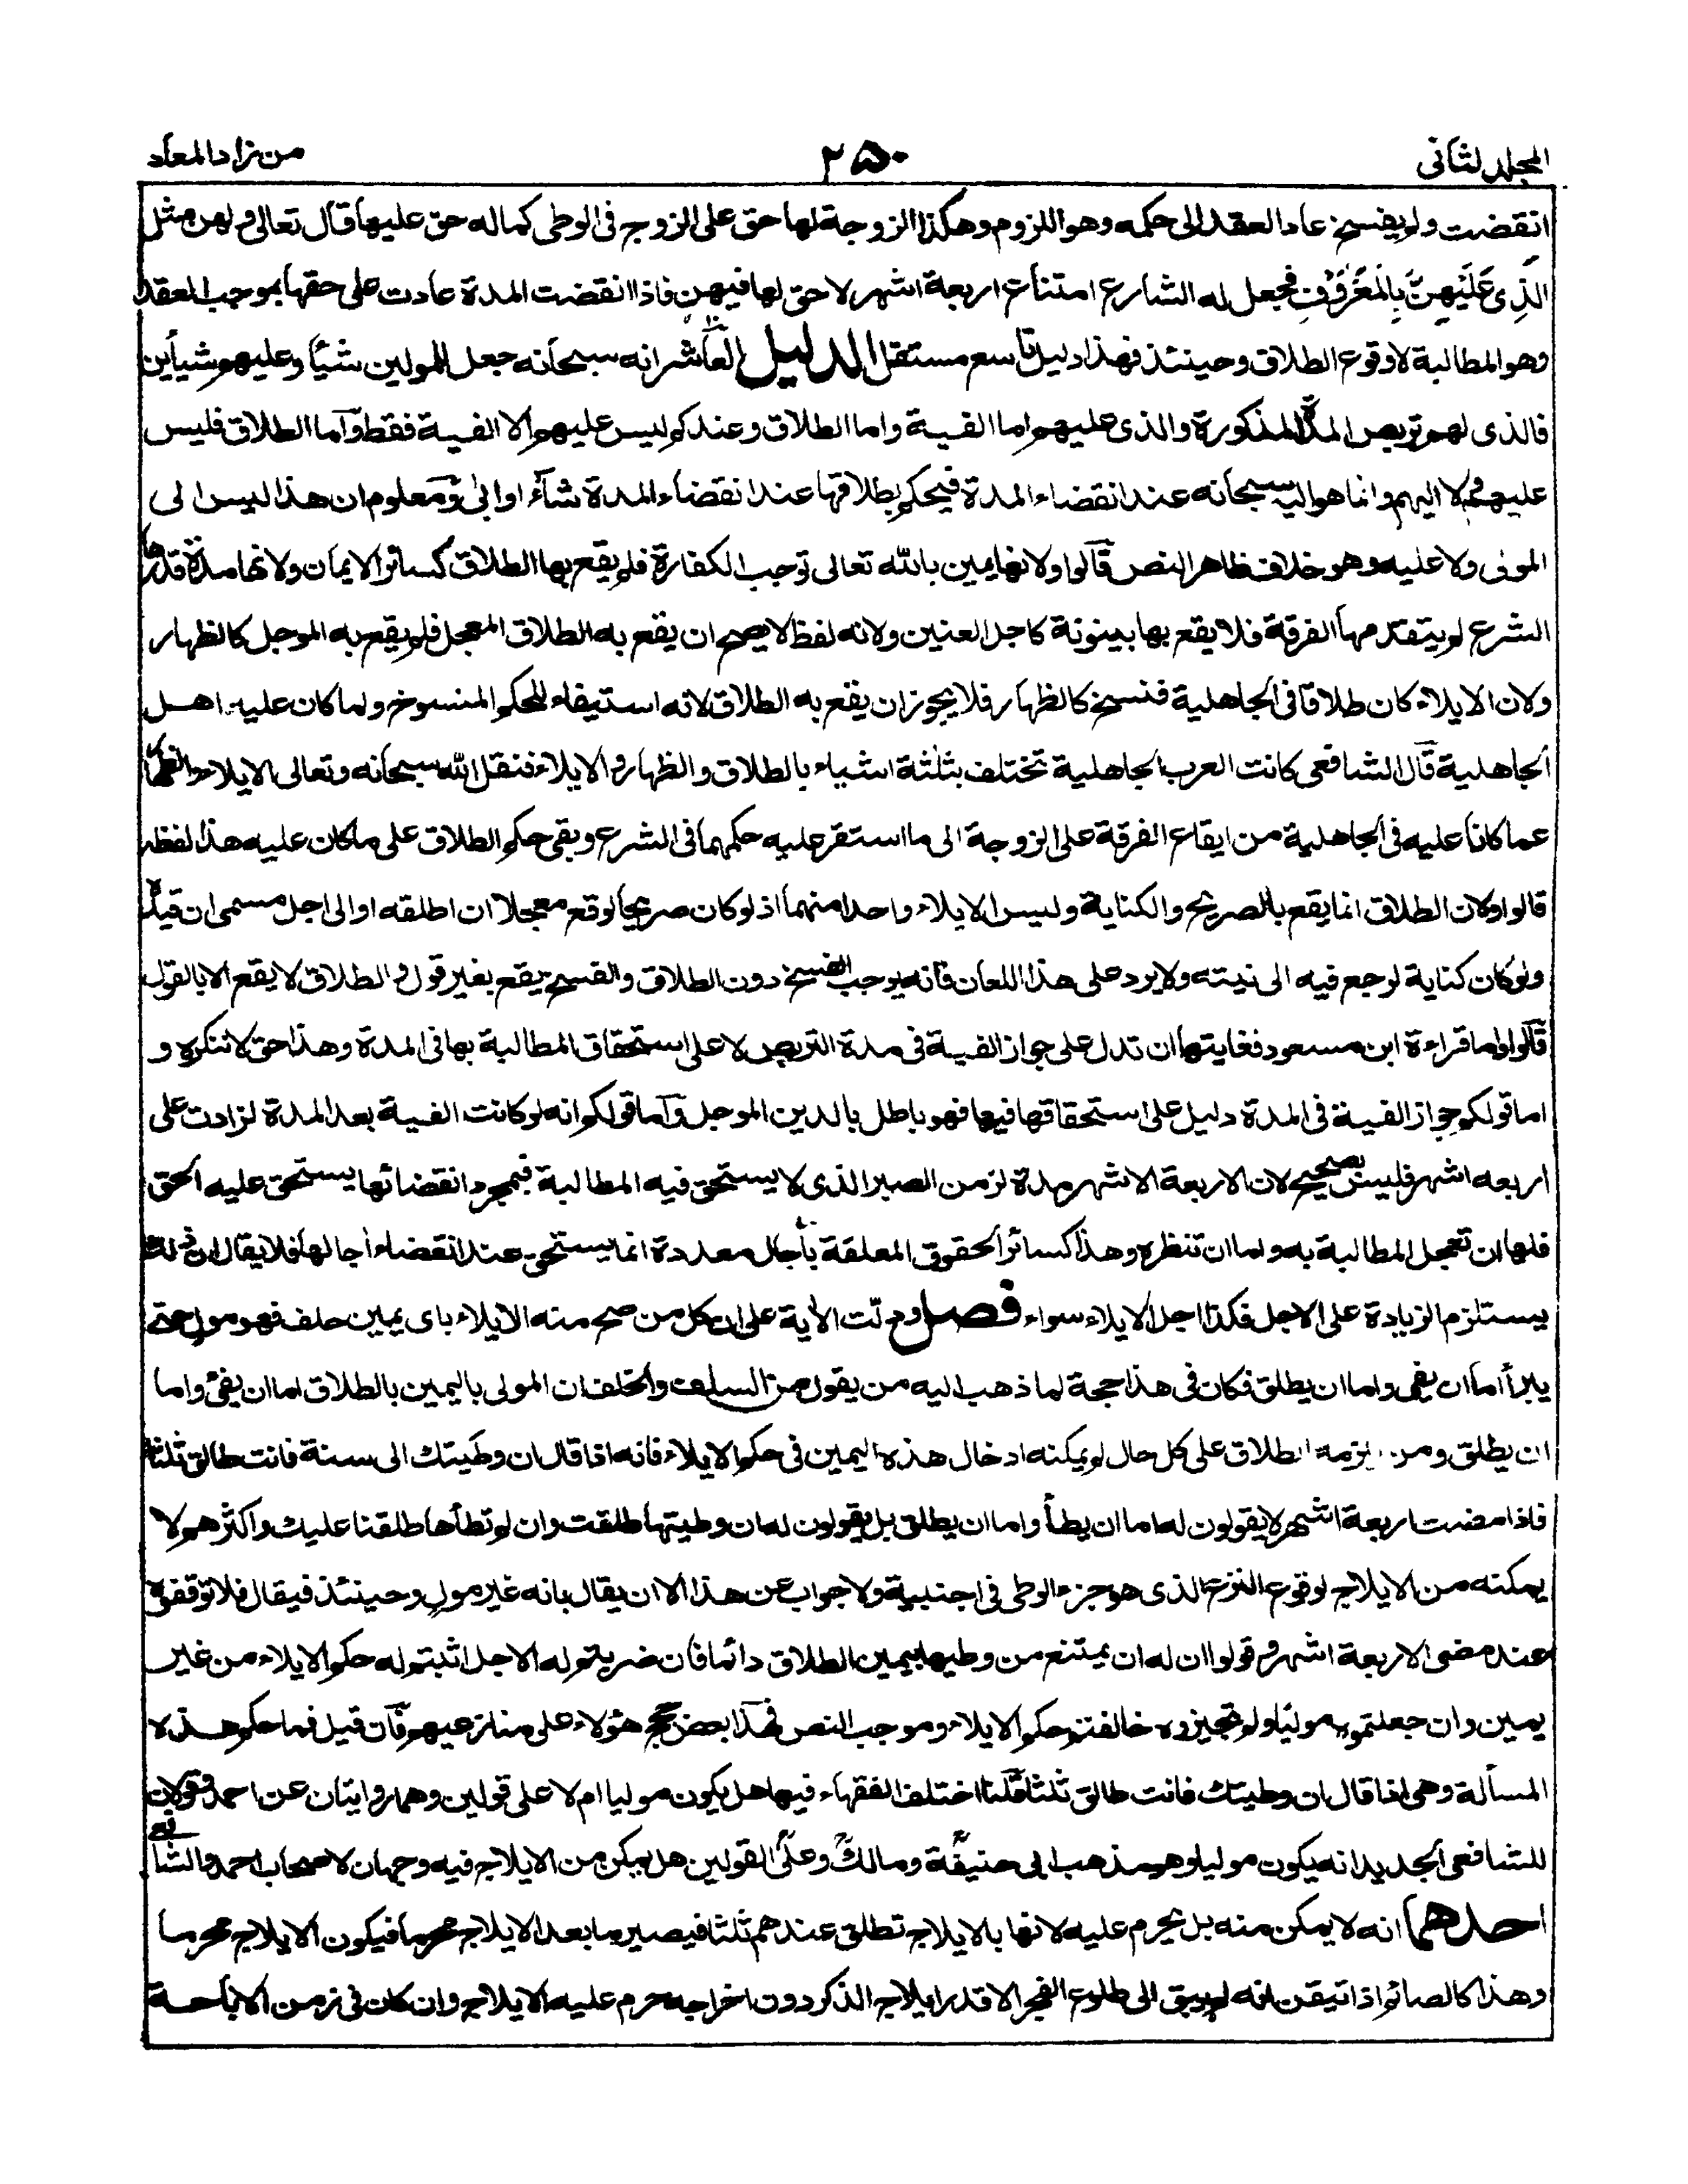 المجلد الثانى
٢٥٠
من زاد المعاد
انقضت ولم يفسخ عاد العقد الى حكمه وهو اللزوم وهكذا الزوجة لها حق على الزوج فى الوطى كما له حق عليها قال تعالى ولهن مثل
الَّذِى عَلَيْهِنَّ بِالْمَعْرُوْفِ فجعل له الشارع امتناع اربعة اشهر لا حق لها فيهن فاذا انقضت المدة عادت على حقها بموجب العقد
وهو المطالبة لا وقوع الطلاق وحينئذ فهذا دليل تاسع مستقل الدليل العاشر انه سبحانه جعل للمولين شيئا وعليهم شيأين
فالذى لهم تربص المدة المذكورة والذى عليهم اما الفيـة واما الطلاق وعندكم ليس عليهم الا الفيـة فقط واما الطلاق فليس
عليهم ولا اليهم وانما هو اليه سبحانه عند انقضاء المدة فيحكم بطلاقها عند انقضاء المدة شاء او ابى ومعلوم ان هذا ليس الى
المولى ولا عليه وهو خلاف ظاهر النص قالوا ولانها يمين بالله تعالى توجب الكفارة فلم يقع بها الطلاق كسائر الايمان ولانها مدة قدرها
الشرع لم يتقدمها الفرقة فلا يقع بها بينونة كاجل العنين ولانه لفظ لا يصح ان يقع به الطلاق المعجل فلم يقع به الموجل كالظهار
ولان الايلاء كان طلاقا فى الجاهلية فنسخ كالظهار فلا يجوز ان يقع به الطلاق لانه استيفاء للحكم المنسوخ ولما كان عليه اهل
الجاهلية قال الشافعى كانت العرب الجاهلية تختلف بثلثة اشياء بالطلاق والظهار والايلاء فنقل الله سبحانه وتعالى الايلاء والظهار
عما كانا عليه فى الجاهلية من ايقاع الفرقة على الزوجة الى ما استقر عليه حكمهما فى الشرع وبقى حكم الطلاق على ما كان عليه هذا لفظه
قالوا ولان الطلاق انما يقع بالصريح والكناية وليس الايلاء واحدا منهما اذ لو كان صريحا لوقع معجلا ان اطلقه او الى اجل مسمى ان قيده
ولو كان كناية لرجع فيه الى نيته ولا يرد على هذا اللعان فانه يوجب الفسخ دون الطلاق والفسخ يقع بغير قول والطلاق لا يقع الا بالقول
قالوا واما قراءة ابن مسعود فغايتها ان تدل على جواز الفيـة فى مدة التربص لا على استحقاق المطالبة بها فى المدة وهذا حق لا ننكره و
اما قولكم جواز الفيـة فى المدة دليل على استحقاقها فيها فهو باطل بالدين الموجل واما قولكم انه لو كانت الفيـة بعد المدة لزادت على
اربعه اشهر فليس بصحيح لان الاربعة الاشهر مدة لزمن الصبر الذى لا يستحق فيه المطالبة فبمجرد انقضائها يستحق عليه الحق
فلها ان تعجل المطالبة به واما ان تنظره وهذا كسائر الحقوق المعلقة بآجال معددة انما يستحق عند انقضاء آجالها فلا يقال ان ذلك
يستلزم الزيادة على الاجل فكذا اجل الايلاء سواء فصل ودلّت الآية على ان كل من صح منه الايلاء باى يمين حلف فهو مول حتى
يبرأ اما ان يفى واما ان يطلق فكان فى هذا حجة لما ذهب اليه من يقول من السلف والخلف ان المولى باليمين بالطلاق اما ان يفئ واما
ان يطلق ومن يلزمه الطلاق على كل حال لم يمكنه ادخال هذه اليمين فى حكم الايلاء فانه اذا قال ان وطيتك الى سنة فانت طالق ثلثا
فاذا مضت اربعة اشهر لا يقولون له اما ان يطأ واما ان يطلق بل يقولون له ان وطيتها طلقت وان لم تطأها طلقنا عليك واكثرهم لا
يمكنه من الايلاج لوقوع النزع الذى هو جزء الوطى فى اجنبية ولا جواب عن هذا الا ان يقال بانه غير مول وحينئذ فيقال فلا توقفوه
عند مضى الاربعة اشهر وقولوا ان له ان يمتنع من وطيها بيمين الطلاق دائما فان ضربتم له الاجل اثبتم له حكم الايلاء من غير
يمين وان جعلتموه موليا ولم تجيزوه خالفتم حكم الايلاء وموجب النص فهذا بعض حجج هؤلاء على منازعيهم فان قيل فما حكم هذه
المسألة وهى اذا قال ان وطيتك فانت طالق ثلثا قلنا اختلف الفقهاء فيها هل يكون موليا ام لا على قولين وهما روايتان عن احمد وقولان
للشافعى الجديد انه يكون موليا وهو مذهب ابى حنيفة ومالك وعلى القولين هل يمكن من الايلاج فيه وجهان لاصحاب احمد والشافعى
احدهما انه لا يمكن منه بل يحرم عليه لانها بالايلاج تطلق عندهم ثلثا فيصير ما بعد الايلاج محرما فيكون الايلاج محرما
وهذا كالصائم اذا تيقن انه لم يبق الى طلوع الفجر الا قدر ايلاج الذكر دون اخراجه حرم عليه الايلاج وان كان فى زمن الاباحة